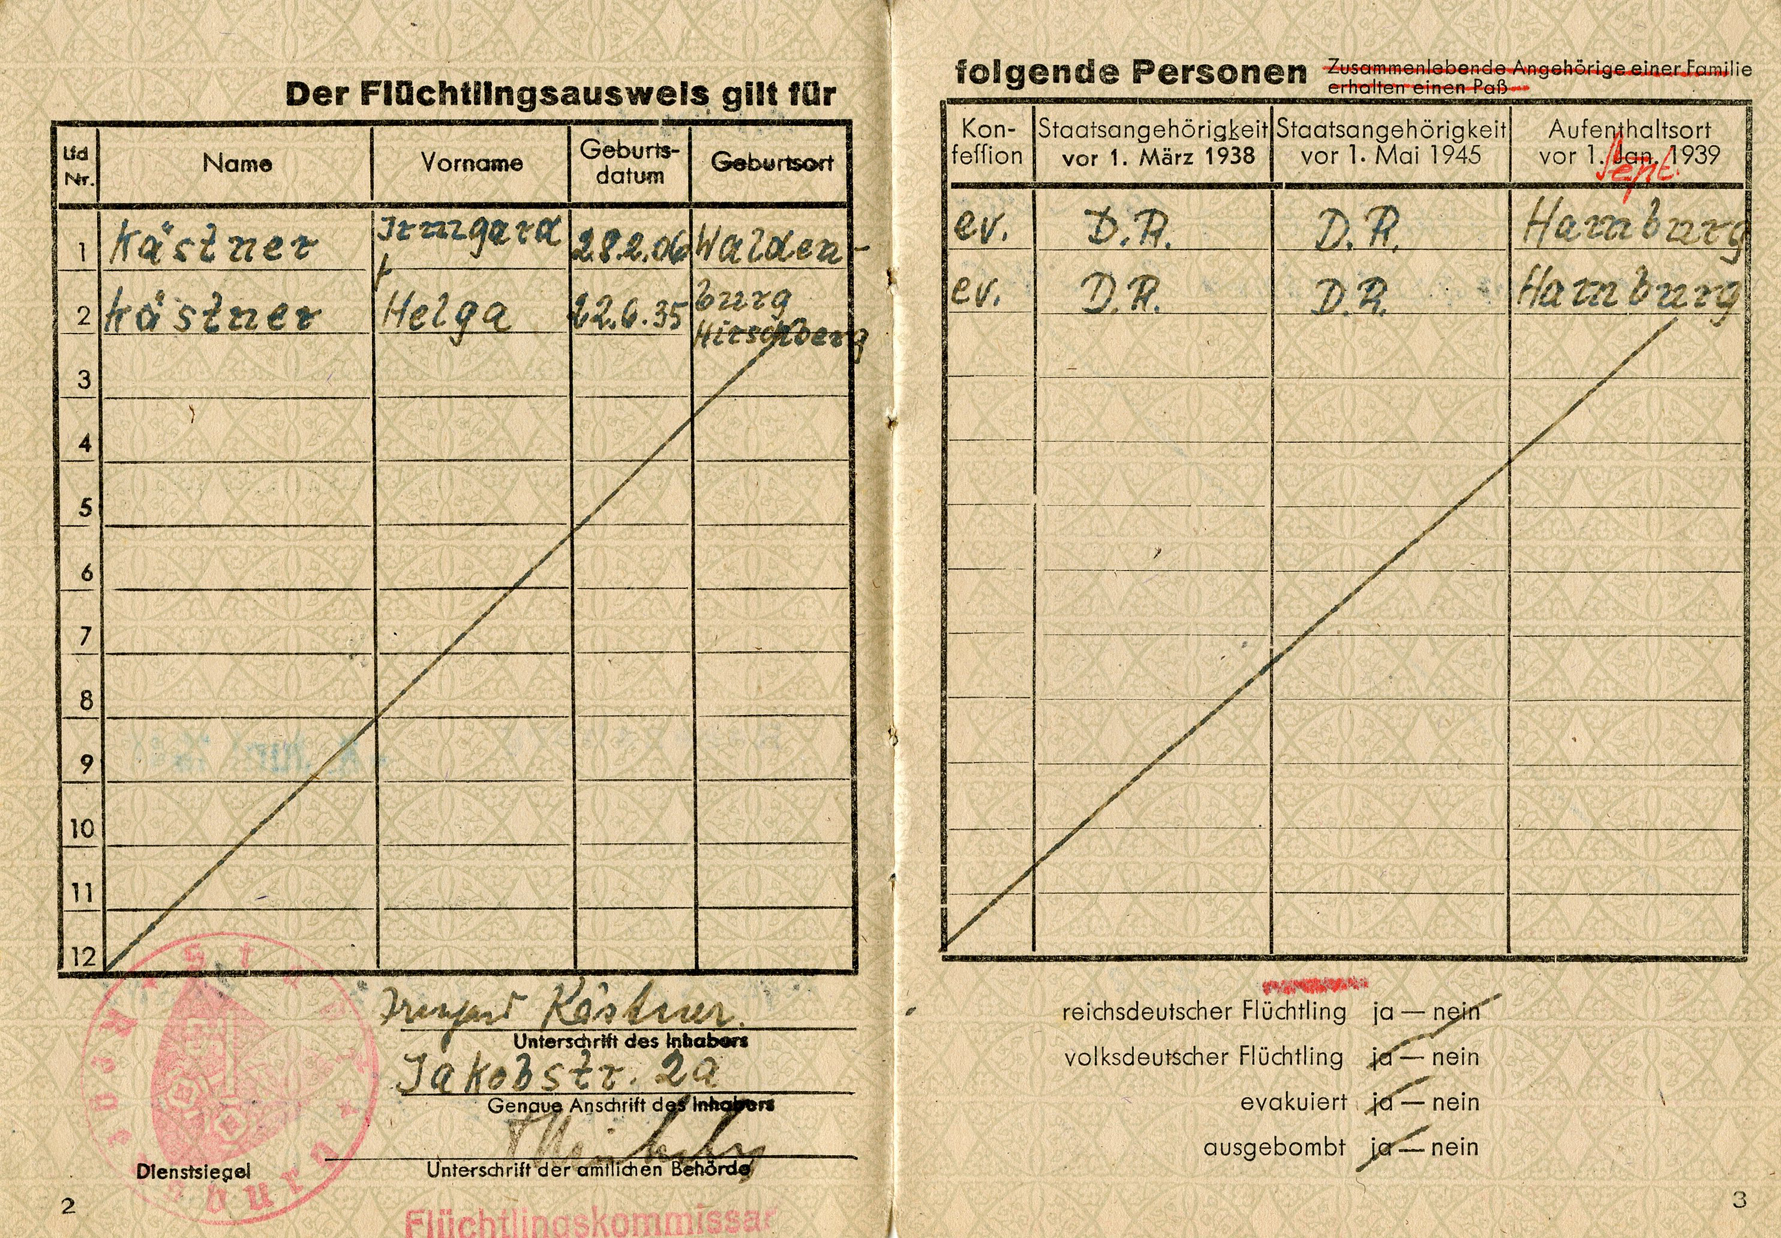 Der Flüchtlingsausweis gilt für
Lfd Nr. Name Vorname Geburts-datum Geburtsort
1 Kästner Irmgard 28.2.06 Walden-
burg
2 Kästner Helga 22.6.35 Hirschberg
3
4
5
6
7
8
9
10
11
12
Irmgard Kästner.
Unterschrift des Inhabers
Jakobstr. 2a
Genaue Anschrift des Inhabers
Dienstsiegel
Unterschrift der amtlichen Behörde
Flüchtlingskommissar
2
folgende Personen Zusammenlebende Angehörige einer Familie
erhalten einen Paß
Kon-fession Staatsangehörigkeit vor 1. März 1938 Staatsangehörigkeit vor 1. Mai 1945 Aufenthaltsort vor 1. Jan. 1939
Sept.
ev. D.R. D.R. Hamburg
ev. D.R. D.R. Hamburg
reichsdeutscher Flüchtling ja — nein
volksdeutscher Flüchtling ja — nein
evakuiert ja — nein
ausgebombt ja — nein
3